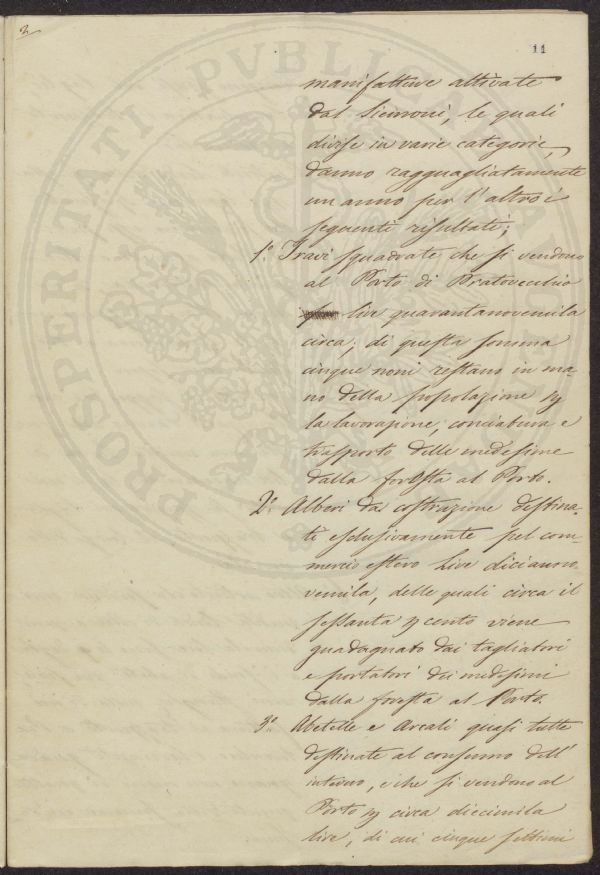 2
11
manifatture attivate
dal Siemoni, le quali
divise in varie categorie,
danno ragguagliatamente
un anno per l'altro i
seguenti risultati;
1.o Travi squadrate che si vendono
al Porto di Pratovecchio
lire quarantanovemila
circa; di questa somma
cinque noni restano in ma-
no della popolazione p
la lavorazione, conciatura e
trasporto delle medesime
dalla foresta al Porto.
2.o Alberi da costruzione destina-
ti esclusivamente pel com-
mercio estero Lire dicianno-
vemila, delle quali circa il
sessanta p cento viene
guadagnato dai tagliatori
e portatori dei medesimi
dalla foresta al Porto.
3.o Abetelle e Arcali quasi tutte
destinate al consumo dell'
interno, e che si vendono al
Porto p circa diecimila
lire, di cui cinque settimi
PROSPERITATI PVBLICAE AVGENDAE